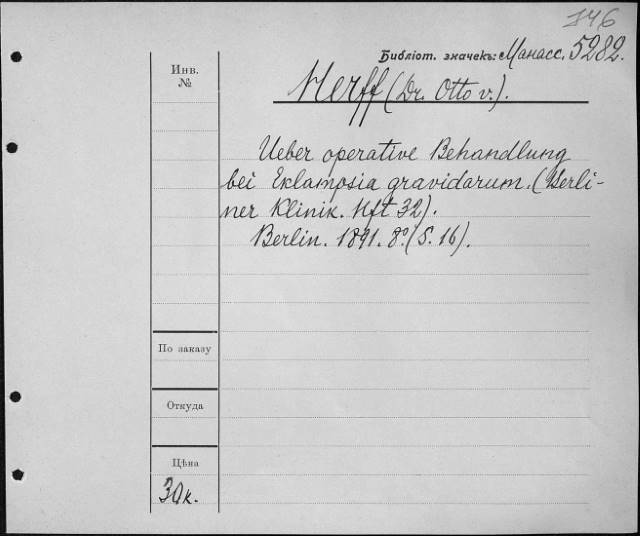 746
Библіот. значекъ: Манасс. 5282.
Инв.
№
Herff (Dr. Otto v.).
Ueber operative Behandlung
bei Eklampsia gravidarum. (Berli-
ner Klinik. Hft 32).
Berlin. 1891. 8º. (S. 16).
По заказу
Откуда
Цѣна
30 к.